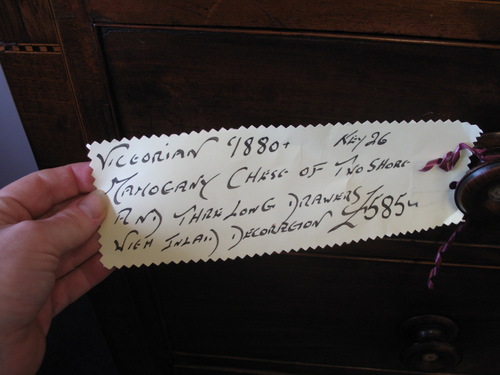 VICTORIAN 1880+ KEY 26
MAHOGANY CHEST OF TWO SHORT
AND THREE LONG DRAWERS
WITH INLAID DECORATION £585